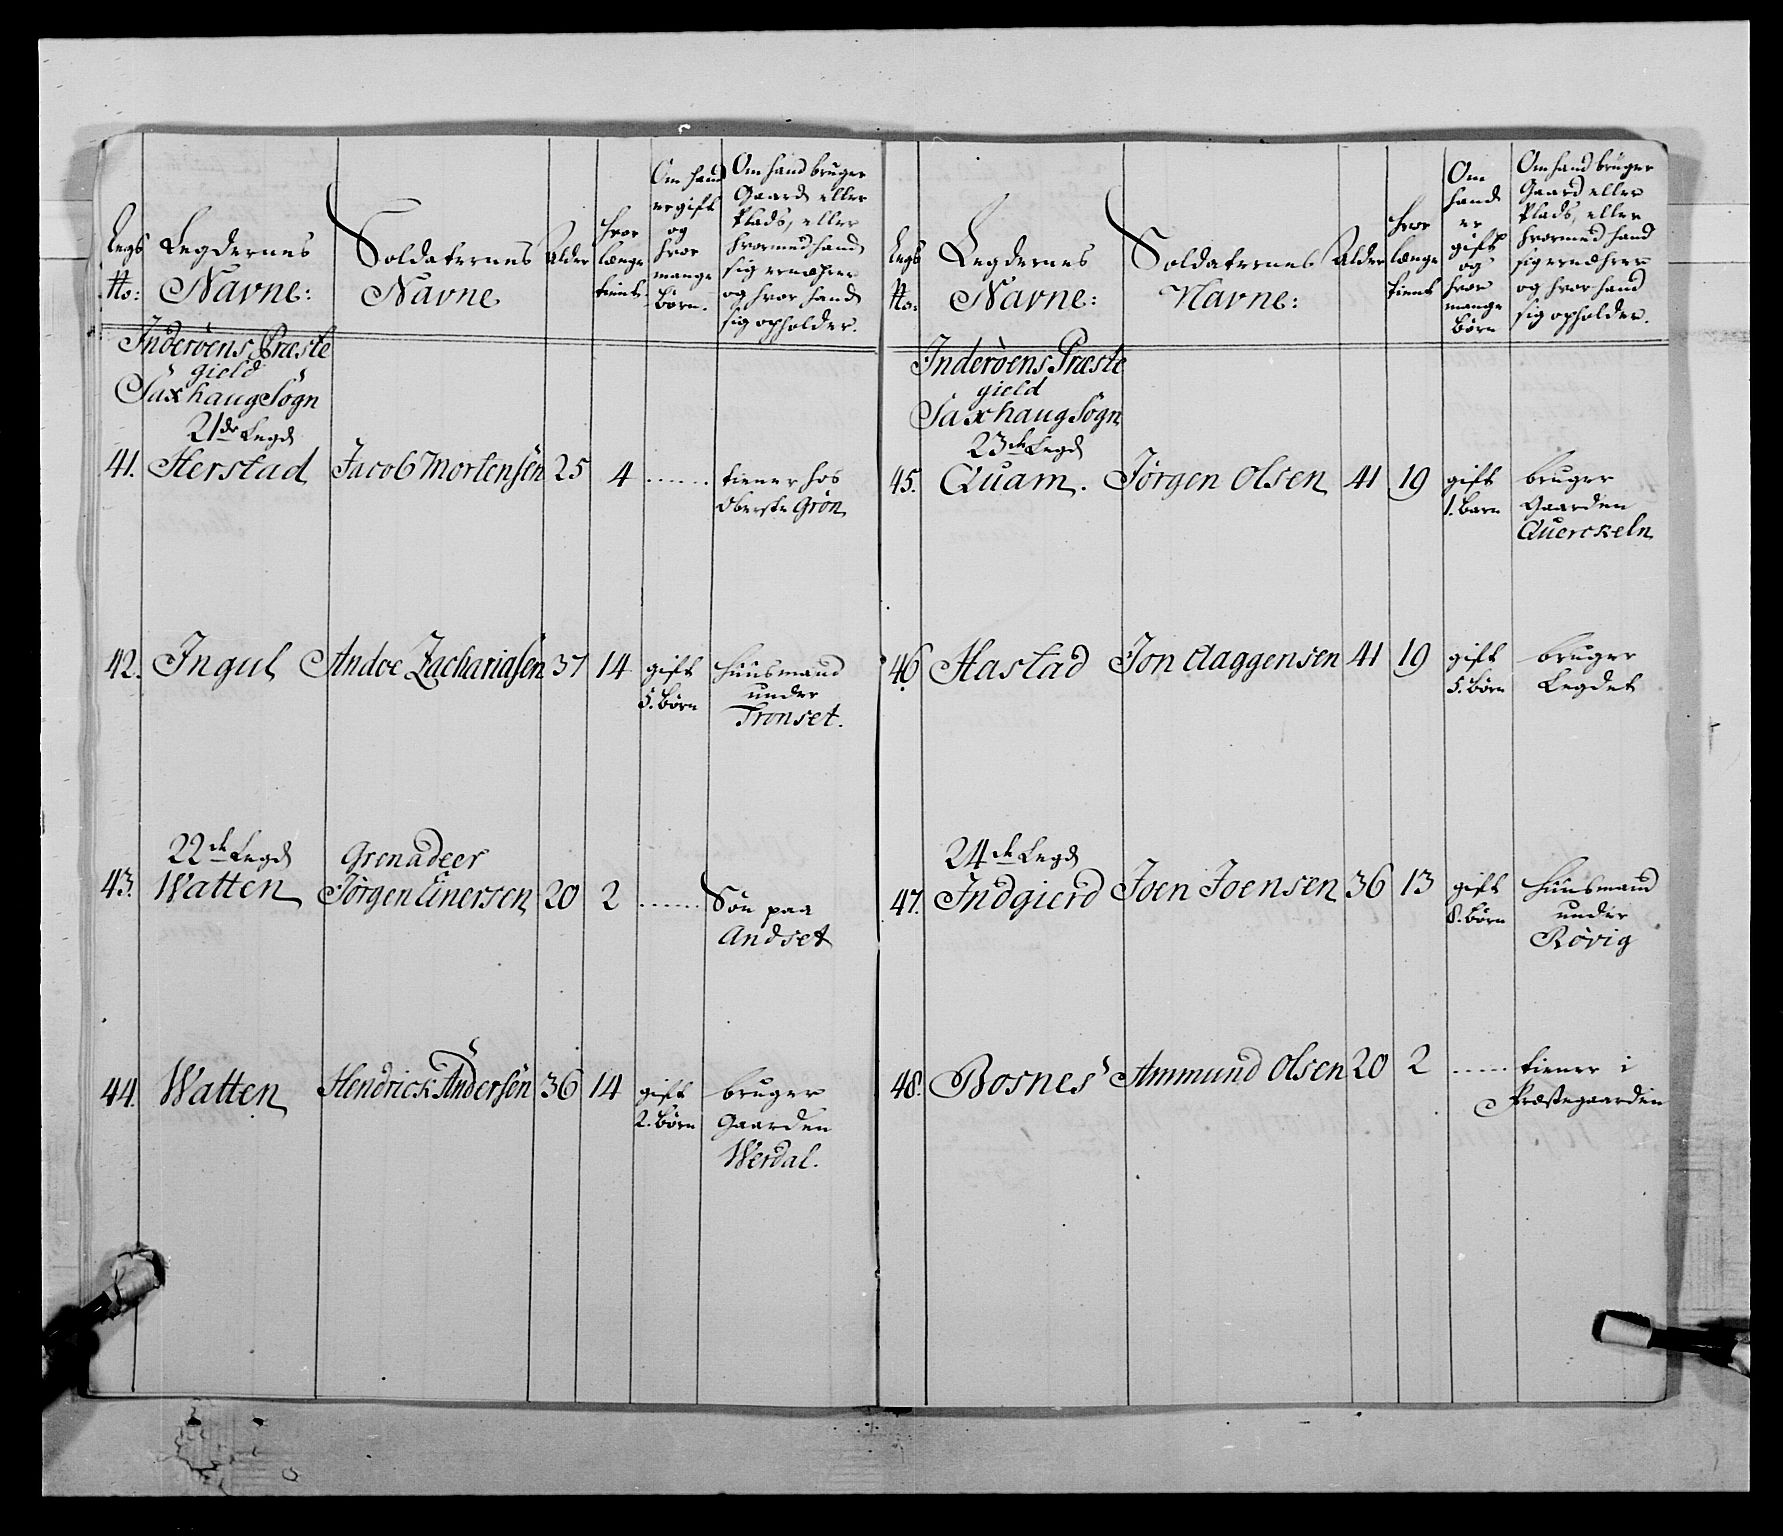 Legs No:
Legdernes Navne:
Soldaternes Navne
Alder
hvor længe tient
Om hand er gift og hvor mange børn.
Om hand bruger Gaard eller Plads, eller hvormed hand sig ernæhrer og hvor hand sig opholder.
Inderöens Præste
gield
Saxhaug Sögn
21de Legd
41. Herstad Jacob Mortensen 25 4 ...... tiener hos
Oberste Grön
42. Ingul Andoe Zachariasen 37 14 gift Huusmand
5. börn under
Tronset.
22de Legd Grenadeer
43. Watten Jörgen Einersen 20 2 ...... Sön paa
Andset
44. Watten Hendrick Andersen 36 14 gift bruger
2. börn Gaarden
Werdal.
Legs No:
Legdernes Navne:
Soldaternes Navne:
Alder
hvor længe tient
Om hand er gift og hvor mange börn
Om hand bruger Gaard eller Plads, eller hvormed hand sig ernæhrer og hvor hand sig opholder.
Inderöens Præste
gield
Saxhaug Sögn
23de Legd
45. Quam. Jörgen Olsen 41 19 gift bruger
1. barn Gaarden
Querckeln
46. Hastad Jon Aaggensen 41 19 gift bruger
5. börn Legdet
24de Legd
47. Indgierd Joen Joensen 36 13 gift Huusmand
8. börn under
Rövig
48. Bosnes Ammund Olsen 20 2 ...... tiener i
Præstegaarden